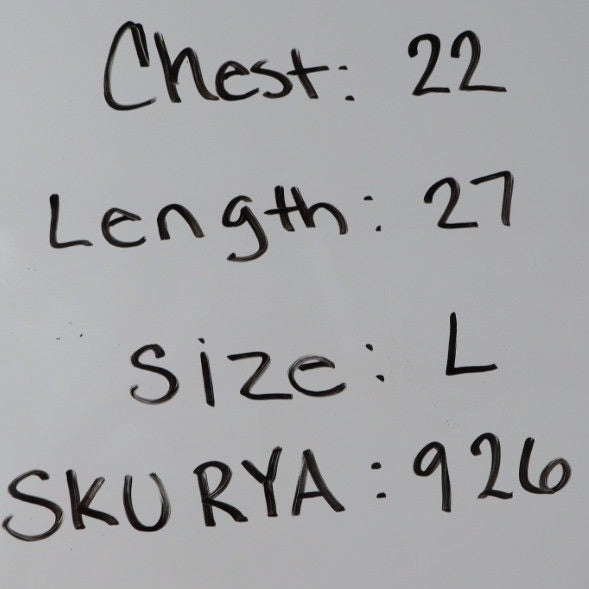 Chest: 22
Length: 27
Size: L
SKU RYA: 926